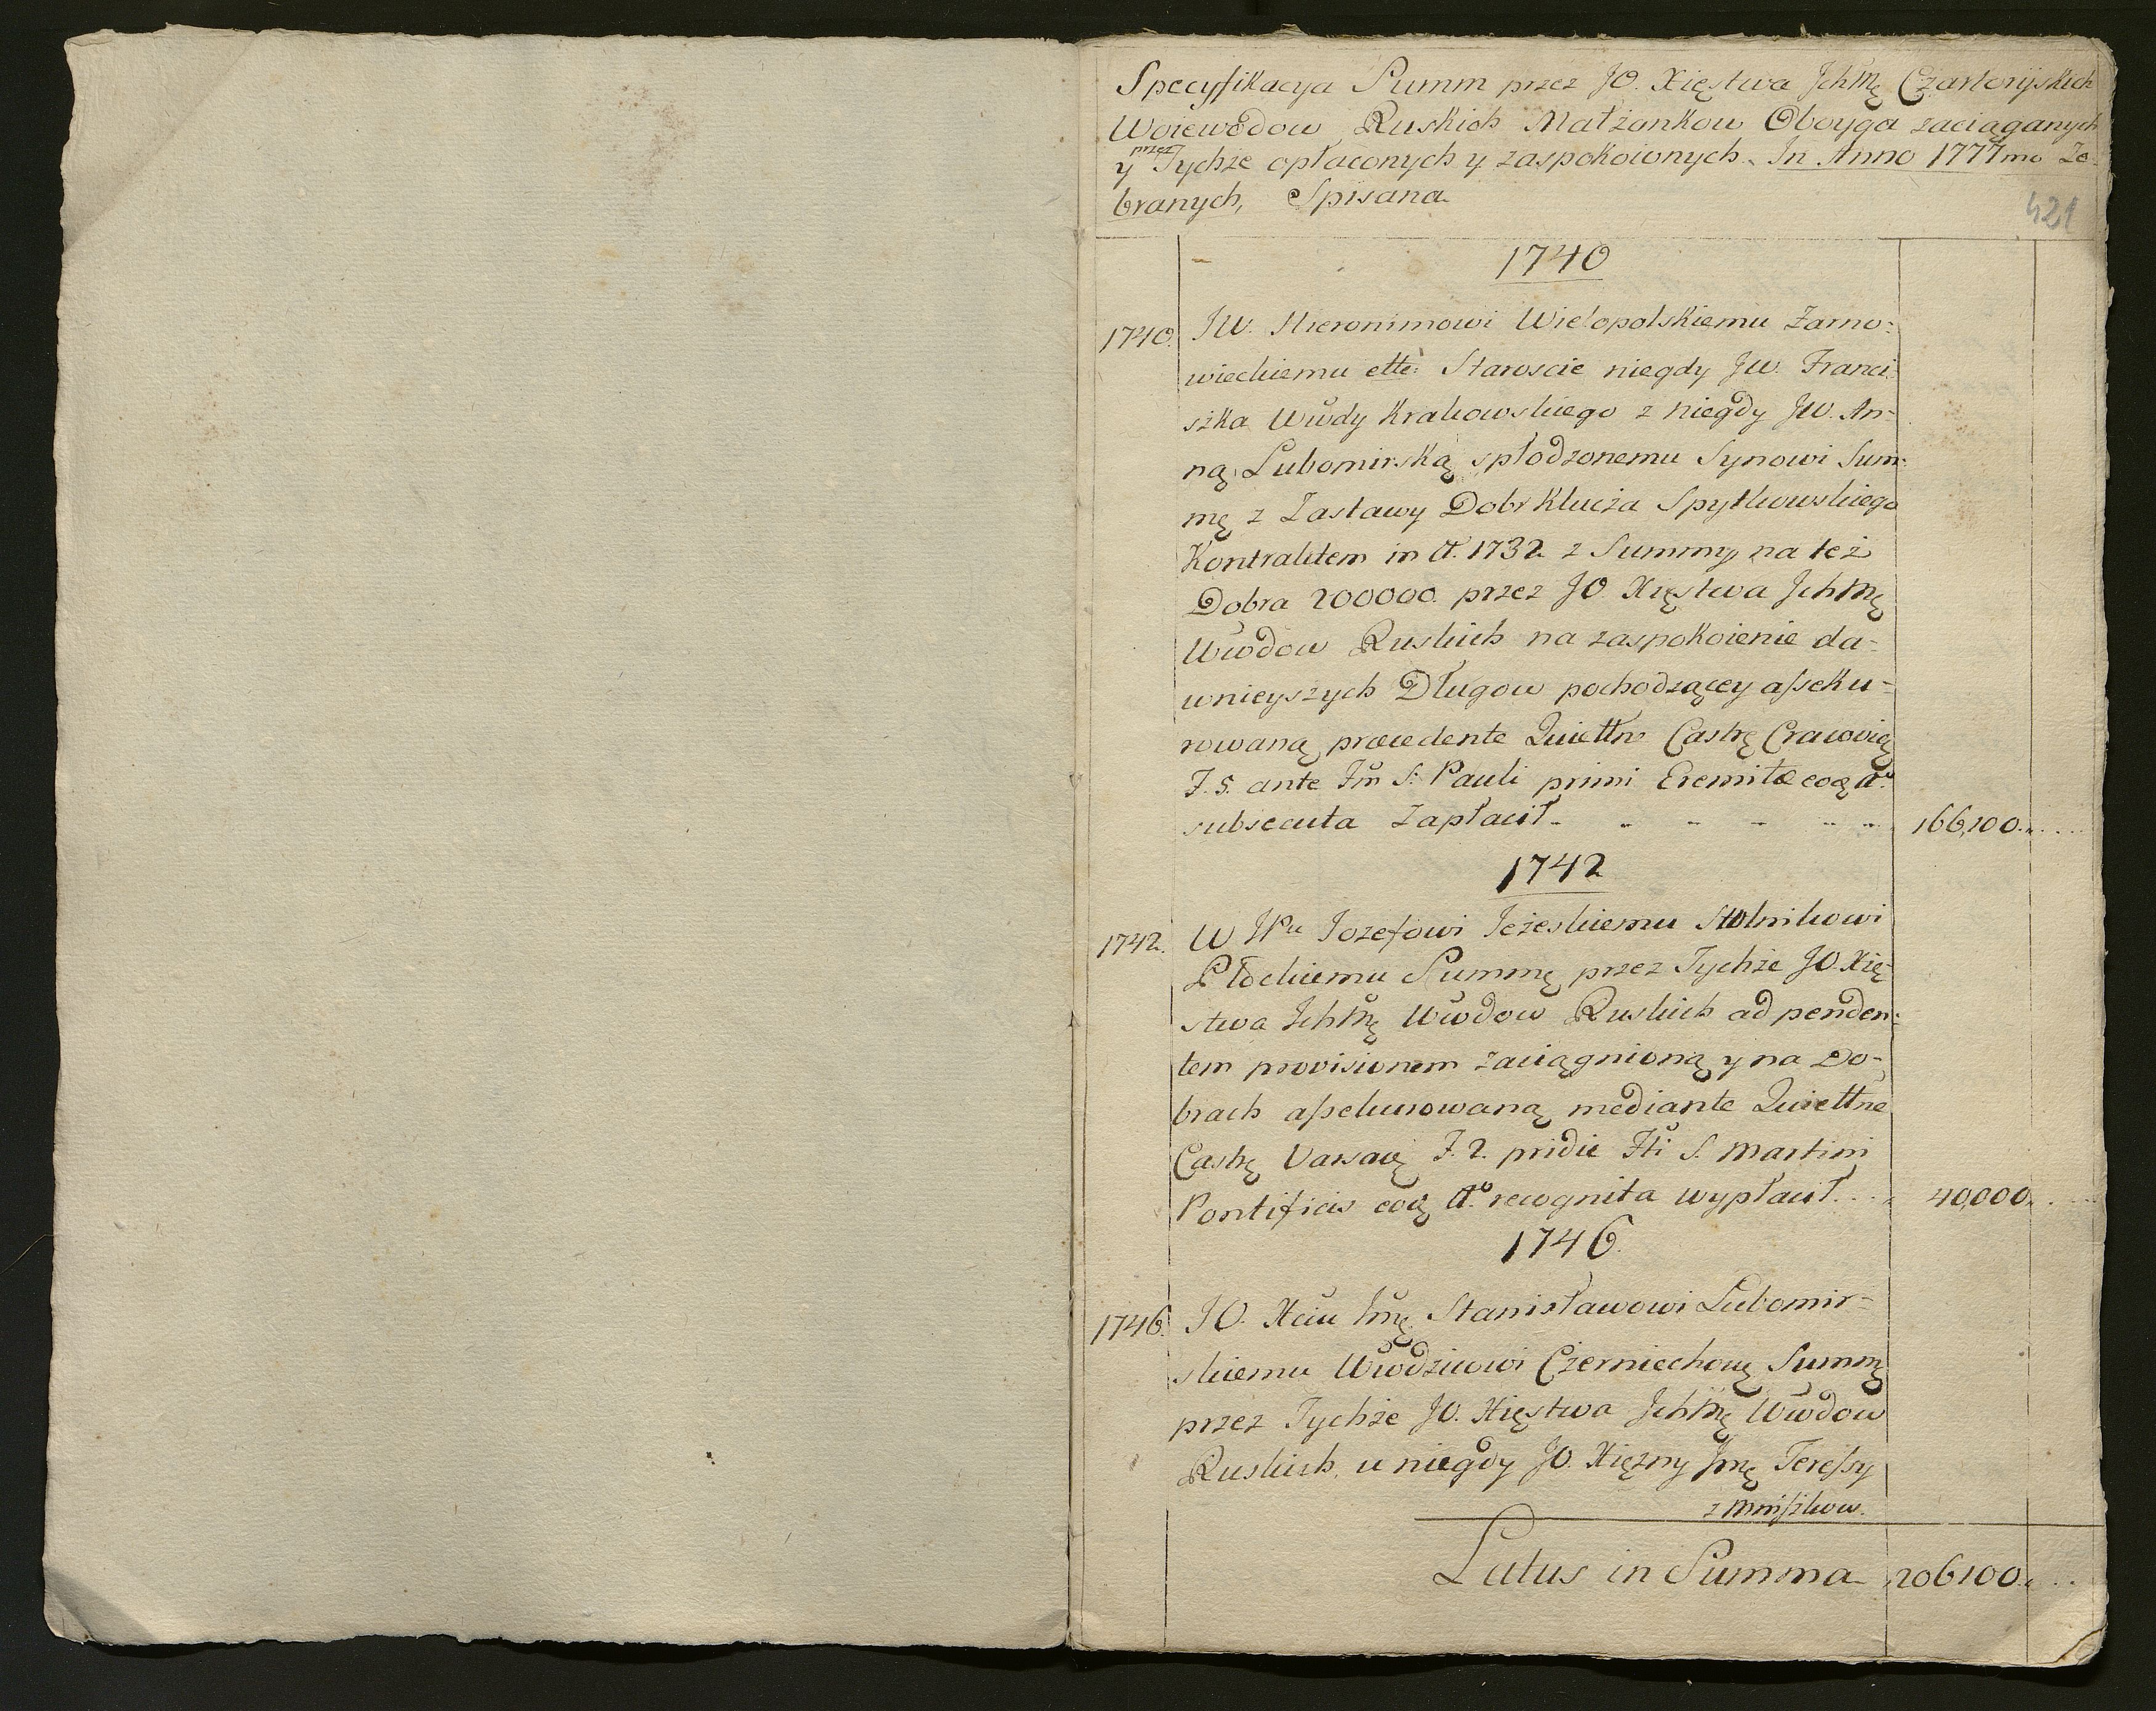 Specyfikacya Summ przez JO. Xięstwa Jchmę Czartoryskich
Woiewodow Ruskich Małżonkow Oboyga zaciąganych
y przez Tychże opłaconych y zaspokoionych. In Anno 1777mo Ze-
branych, Spisana
421
1740
1740. JW. Hieronimowi Wielopolskiemu Żarno-
wieckiemu ette: Staroscie niegdy JW. Franci-
szka Wwdy Krakowskiego z niegdy JW. An-
ną Lubomirską spłodzonemu Synowi Sum-
mę z Zastawy Dobr Klucza Spytkowskiego
Kontraktem in A. 1732 z Summy na też
Dobra 200000. przez JO Xięstwa Jchmę
Wwdow Ruskich na zaspokoienie da-
wnieyszych Długow pochodzącey asseku-
rowaną, præcedente Quiettne Castrę Cracovię
F. 5. ante Fm S. Pauli primi Eremitæ eoq Ao
subsecuta Zapłacił 166,100.
1742
1742. W JPu Jozefowi Jeżeskiemu Stolnikowi
Płockiemu Summę przez Tychże JO. Xię-
stwa Jchmę Wwdow Ruskich ad penden-
tem provisionem zaciągnioną y na Do-
brach assekurowaną mediante Quiettne
Castrę Varsavię F. 2. pridie Fti S. Martini
Pontificis eoq Ao recognita wypłacił 40,000.
1746.
1746. JO. Xciu Jmę Stanisławowi Lubomir-
skiemu Wwdzicowi Czerniechowę Summę
przez Tychże JO. Xięstwa Jchmę Wwdow
Ruskich, u niegdy JO. Xięzny Jmę Teressy
z Mniszkow
Latus in Summa 206100.